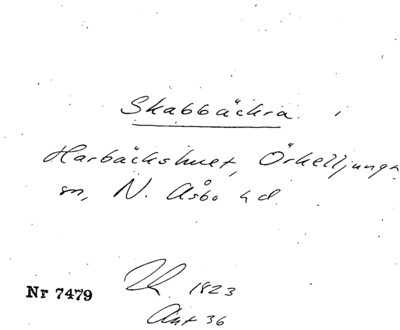 Skabbäckra.
Harbäckshult, Örkelljunga
sn, N. Åsbo hd.
Nr 7479
1823
Akt 36